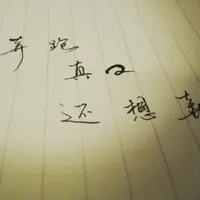 奔跑
真
还想